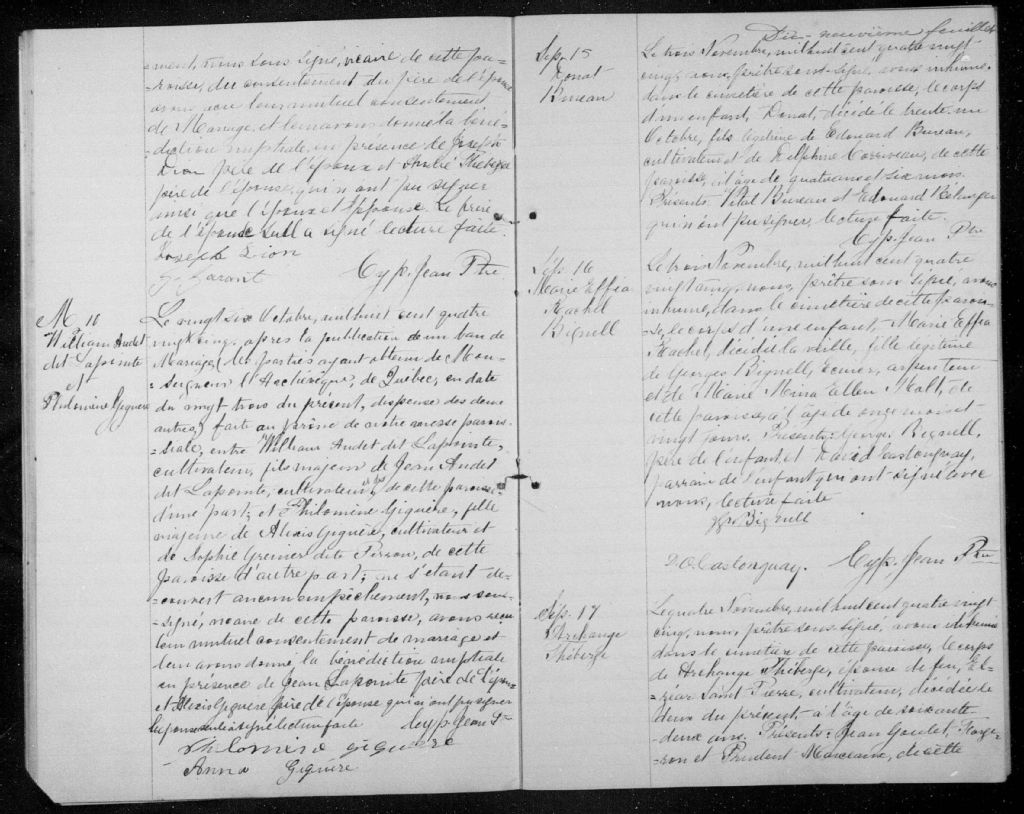 ment, nous sous signé, vicaire de cette pa=
=roisse, du consentement du père de l'épouse
avons reçu leur mutuel consentement
de Mariage, et leur avons donné la béné=
=diction nuptiale, en présence de Joseph
Dion père de l'époux et André Théberge
père de l'épouse, qui n'ont pu signer
ainsi que l'époux et l'épouse. Le frère
de l'épouse seul a signé lecture faite.
Joseph Dion
G. Garant Cyp. Jean Ptre
M. 10
William Audet
dit Lapointe
et
Philomène Giguère
Le vingt six Octobre, mil huit cent quatre
vingt cinq, après la publication de un ban de
Mariage, (les parties ayant obtenu de Mon=
=seigneur l'Archevêque, de Québec, en date
du vingt trois du présent, dispense des deux
autres) faite au prône de notre messe parois
=siale, entre William Audet dit Lapointe,
cultivateur, fils majeur de Jean Audet
dit Lapointe, cultivateur, de cette paroisse
d'une part; et Philomène Giguère, fille
majeure de Alexis Giguère, cultivateur et
de Sophie Grenier dite Perron, de cette
paroisse d'autre part; ne s'étant dé=
=couvert aucun empêchement, nous sous=
=signé, vicaire de cette paroisse, avons reçu
leur mutuel consentement de mariage et
leur avons donné la bénédiction nuptiale
en présence de Jean Lapointe père de l'époux
et Alexis Giguère père de l'épouse qui n'ont pu signer
l'épouse a signé lecture faite Cyp. Jean Ptre
Philomène Giguère
Anna Giguère
Dix-neuvième feuillet
Sép. 15
Donat
Bureau
Le trois Novembre, mil huit cent quatre vingt
cinq, nous, prêtre sous-signé, avons inhumé,
dans le cimetière de cette paroisse, le corps
d'un enfant, Donat, décédé le trente-un
Octobre, fils légitime de Edouard Bureau,
cultivateur et de Delphine Corriveau, de cette
paroisse, à l'âge de quatre ans et six mois.
Présents: Vital Bureau et Edouard Bélanger
qui n'ont pu signer, lecture faite.
Cyp. Jean Ptre
Sép. 16
Marie Effia
Rachel
Bignell
Le trois Novembre, mil huit cent quatre
vingt cinq, nous, prêtre sous-signé, avons
inhumé, dans le cimetière de cette parois=
=se, le corps d'une enfant, Marie Effia
Rachel, décédée la veille, fille légitime
de Georges Bignell, Ecuier, arpenteur
et de Marie Mina Ellen Malt, de
cette paroisse, à l'âge de onze mois et
vingt jours. Présents: Georges Bignell,
père de l'enfant, et David Castonguay,
parrain de l'enfant qui ont signé avec
nous, lecture faite
Bignell
D.O. Castonguay. Cyp. Jean Ptre
Sép. 17
Archange
Théberge
Le quatre Novembre, mil huit cent quatre vingt
cinq, nous, prêtre sous-signé, avons inhumé
dans le cimetière de cette paroisse, le corps
de Archange Théberge, épouse de feu, El=
=zear Saint Pierre, cultivateur, décédée le
deux du présent, à l'âge de soixante
deux ans. Présents: Jean Goulet, Forge=
=ron et Prudent Marceau, de cette